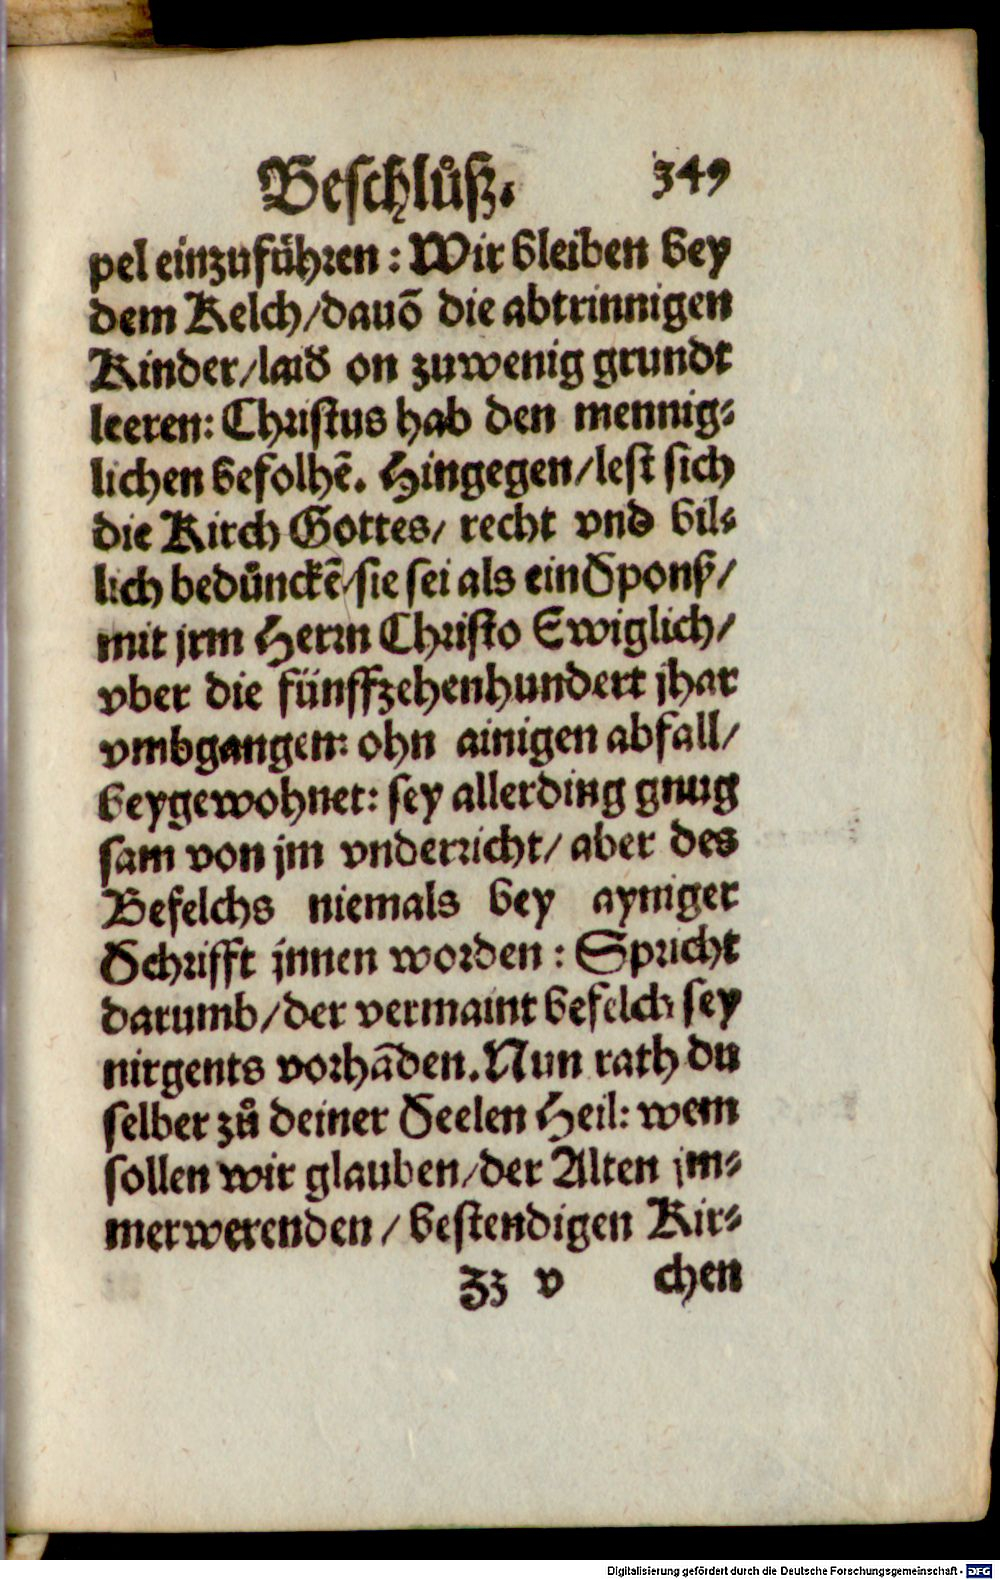 Beschluͦß. 349
pel einzufuͤhren: Wir bleiben bey
dem Kelch/dauõ die abtrinnigen
Kinder/laid on zuwenig grundt
leeren: Christus hab den mennig⸗
lichen befolhẽ. Hingegen/lest sich
die Kirch Gottes/ recht vnd bil⸗
lich beduͦnckẽ/sie sei als ein Sponß/
mit jrm Herrn Christo Ewiglich/
vber die fünffzehenhundert jhar
vmbgangen: ohn ainigen abfall/
beygewohnet: sey allerding gnug
sam von jm vnderricht/ aber des
Befelchs niemals bey ayniger
Schrifft jnnen worden: Spricht
darumb/der vermaint befelch sey
nirgents vorhãden. Nun rath du
selber zuͦ deiner Seelen Heil: wem
sollen wir glauben/der Alten jm⸗
merwerenden/ bestendigen Kir⸗
Zz v chen
Digitalisierung gefördert durch die Deutsche Forschungsgemeinschaft - DFG